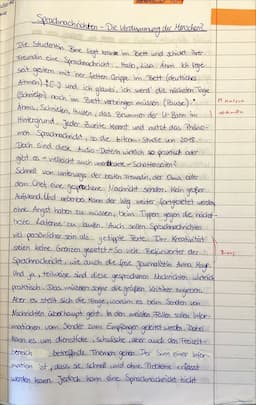 Sprachnachrichten - Die Verdummung der Menschen?
Die Studentin Jane liegt krank im Bett und schickt ihrer
Freundin eine Sprachnachricht: "Hallo, Lisa. Ähm. Ich liege
seit gestern mit der fetten Grippe im Bett (deutliches
Atmen) [...] und ich glaub, ich werd' die nächsten Tage
noch im Bett verbringen müssen (Pause)."
Ähms, Schniefen, Husten, das Brummen der U-Bahn im
Hintergrund. Jeder Zweite kennt und nutzt das Phäno-
men Sprachnachricht, so die Studie von 2018.
Doch sind diese Audio-Dateien wirklich so praktisch oder
gibt es vielleicht auch Schattenseiten?
Schnell von unterwegs der besten Freundin, der Oma oder
dem Chef eine gesprochene Nachricht senden. Kein großer
Aufwand und nebenbei kann der Weg weiter fortgesetzt werden,
ohne Angst haben zu müssen, beim Tippen gegen die nächst-
beste Laterne zu laufen. Auch sollen Sprachnachrichten
viel persönlicher sein als getippte Texte. Der Kreativität
seien keine Grenzen gesetzt. So viele Befürworter der
Sprachnachricht, wie auch die freie Journalistin Anna
Und ja, teilweise sind diese gesprochenen Nachrichten wirklich
praktisch. Das müssen sogar die größten Kritiker zugeben.
Aber es stellt sich die Frage, worum es beim Senden von
Nachrichten überhaupt geht. In den meisten Fällen sollen Infor-
mationen vom Sender zum Empfänger geleitet werden. Dabei
kann es um dienstliche, schulische, aber auch den Freizeit-
bereich betreffende Themen gehen. Der Sinn einer Infor-
mation ist, dass sie schnell und ohne Probleme erfasst
werden kann. Jedoch kann eine Sprachnachricht nicht